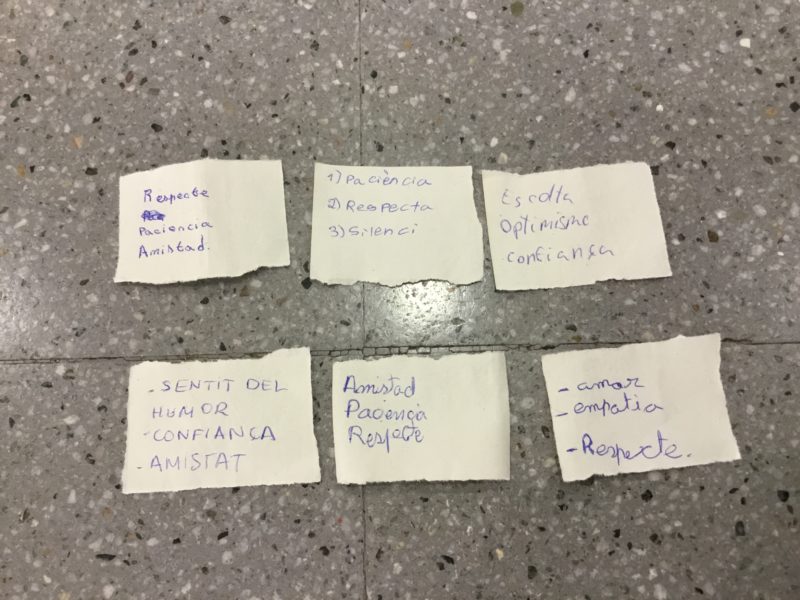 Respecte
Paciencia
Amistad.
1) Paciència
2) Respecta
3) Silenci
Escolta
Optimisme
Confiança
- SENTIT DEL
HUMOR
- CONFIANÇA
- AMISTAT
Amistad
Paciença
Respecte
- amor
- empatia
- Respecte.